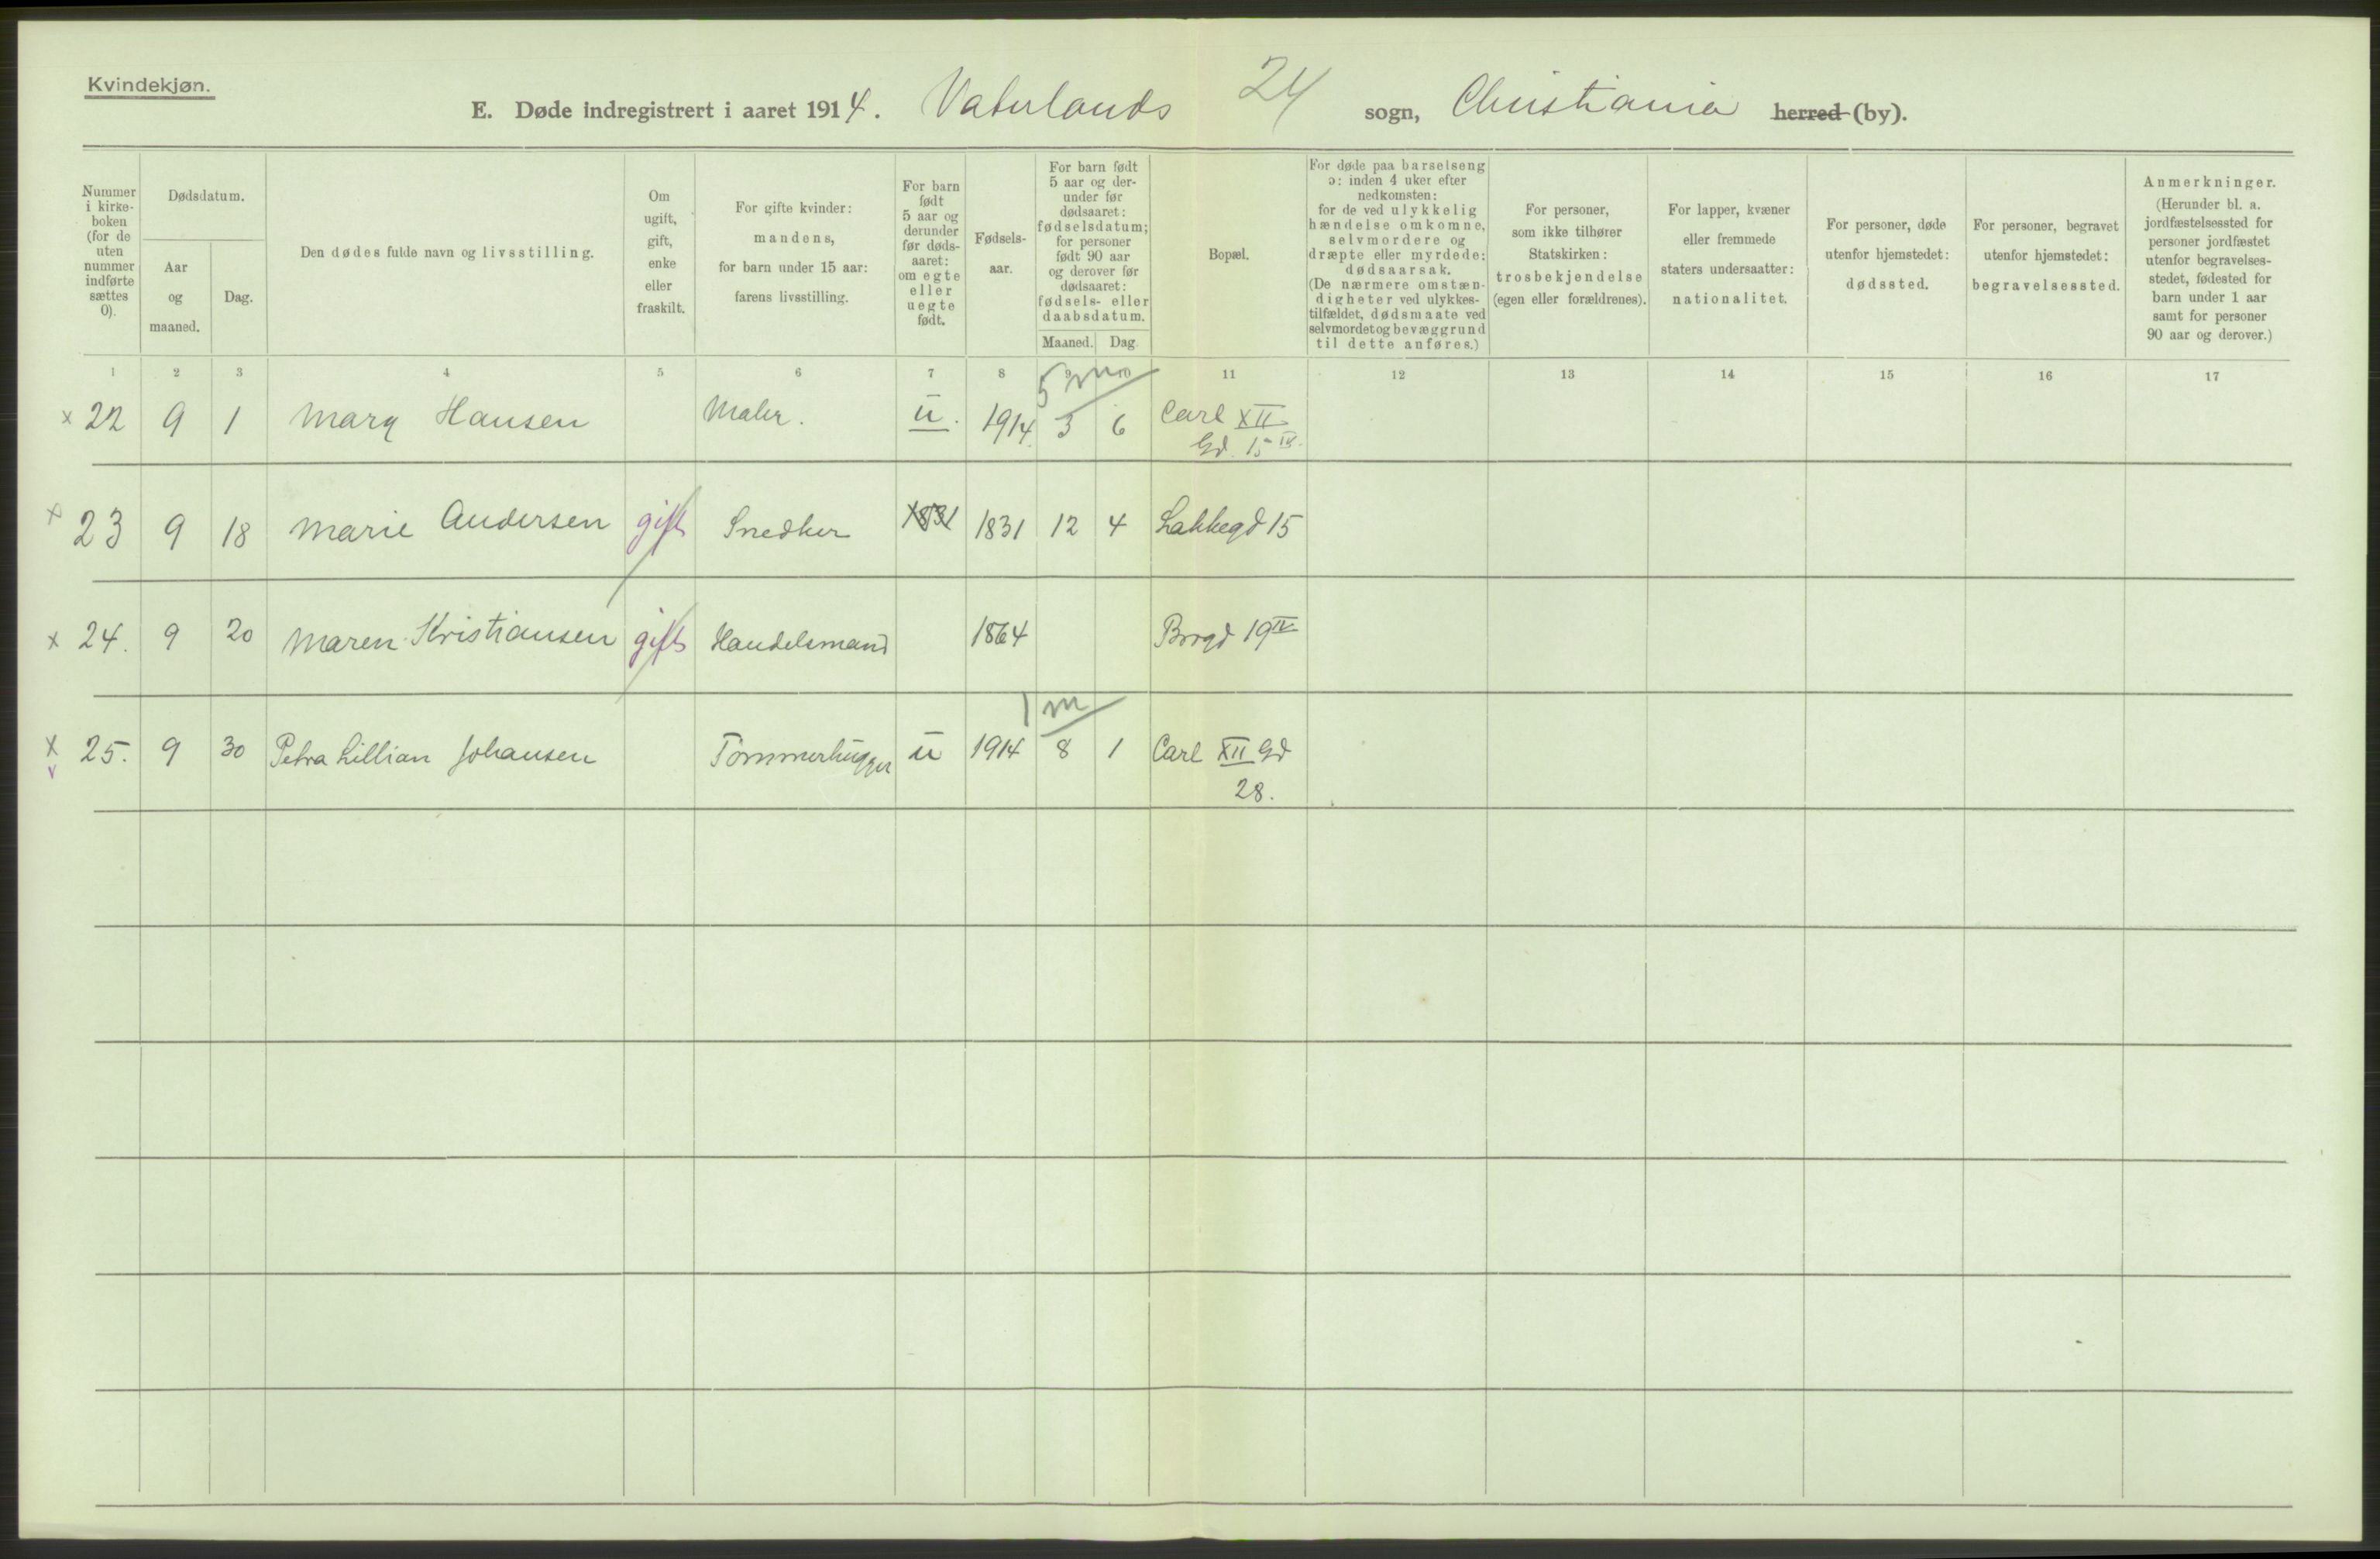 Kvindekjøn.
E. Døde indregistrert i aaret 1914. Vaterlands 24 sogn, Christiania herred (by).
Nummer i kirke- boken (for de uten nummer indførte sættes 0).
Dødsdatum.
Aar og maaned.
Dag.
Den dødes fulde navn og livsstilling.
Om ugift, gift, enke eller fraskilt.
For gifte kvinder: mandens, for barn under 15 aar: farens livsstilling.
For barn født 5 aar og derunder før døds- aaret: om egte eller uegte født.
Fødsels- aar.
For barn født 5 aar og der- under før dødsaaret: fødselsdatum; for personer født 90 aar og derover før dødsaaret: fødsels- eller daabsdatum.
Maaned. Dag.
Bopæl.
For døde paa barselseng ɔ: inden 4 uker efter nedkomsten: for de ved ulykkelig hændelse omkomne, selvmordere og dræpte eller myrdede: dødsaarsak. (De nærmere omstæn- digheter ved ulykkes- tilfældet, dødsmaate ved selvmordet og bevæggrund til dette anføres.)
For personer, som ikke tilhører Statskirken: trosbekjendelse (egen eller forældrenes).
For lapper, kvæner eller fremmede staters undersaatter: nationalitet.
For personer, døde utenfor hjemstedet: dødssted.
For personer, begravet utenfor hjemstedet: begravelsessted.
Anmerkninger. (Herunder bl. a. jordfæstelsessted for personer jordfæstet utenfor begravelses- stedet, fødested for barn under 1 aar samt for personer 90 aar og derover.)
1 2 3 4 5 6 7 8 9 10 11 12 13 14 15 16 17
5 m
x 22 9 1 Mary Hansen Maler. u. 1914. 3 6 Carl XII
Gd. 15 IV.
x 23 9 18 Marie Andersen gift Snedker 1831 1831 12 4 Lakkegd 15
x 24. 9 20 Maren Kristiansen gift Handelsmand 1864 Brogd 19 IV
1 m
x 25. 9 30 Petra Lillian Johansen Tømmerhugger u 1914 8 1 Carl XII Gd
v
28.